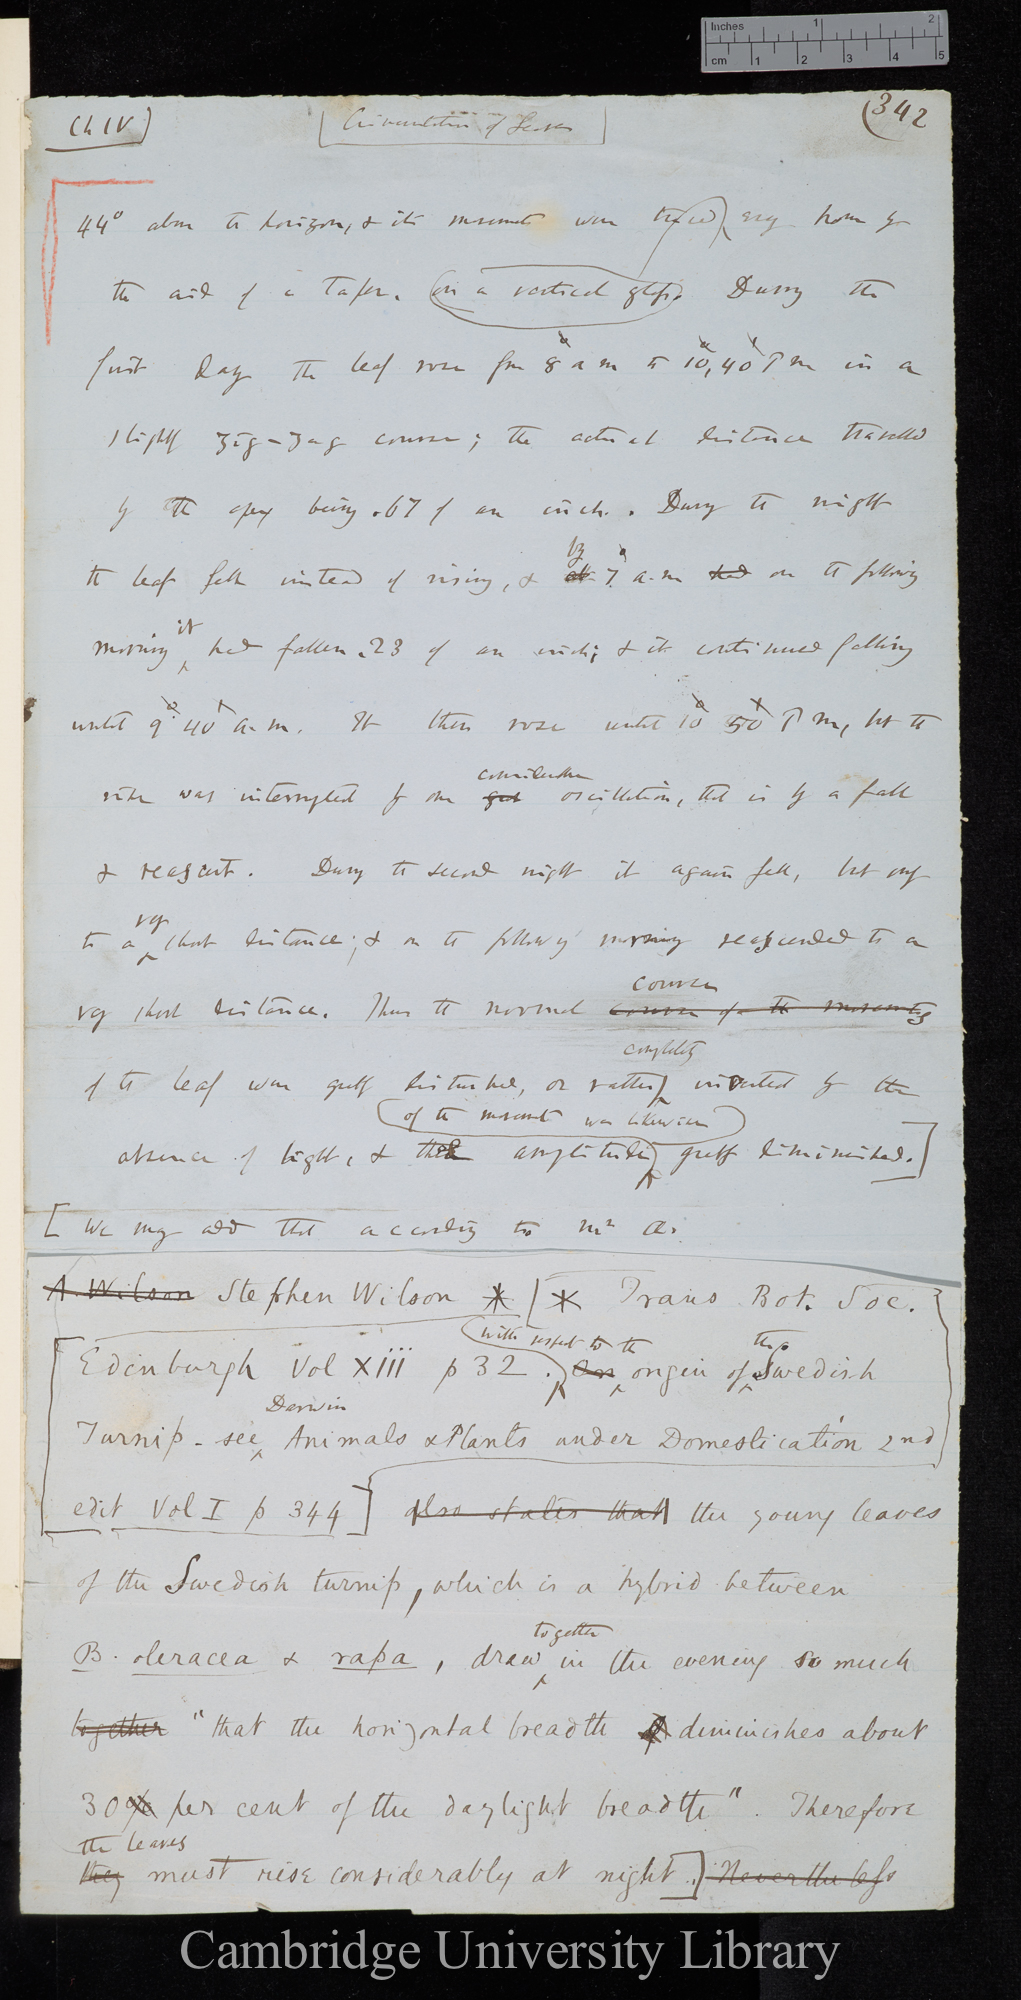 Inches 1 2
cm 1 2 3 4 5
Ch IV]
[Circumnutation of Leaves]
(342
44° above the horizon, & its movements were traced very from by
the aid of a taper. (on a vertical glass. During the
first day the leaf rose from 8 a m to 10, 40 P m in a
slightly zig-zag course; the actual distance travelled
by the apex being .67 of an inch. During the night
by
the leaf fell instead of rising, & at 7 a.m had on the following
it
morning had fallen .23 of an inch; & it continued falling
until 9. 40 a.m. It then rose until 10 50 P m, but the
considerable
rise was interrupted by one great oscillation, that is by a fall
& reascent. During the second night it again fell, but only
very
to a short distance; & on the following morning reascended to a
course
very short distance. Thus the normal course of the movements
completely
of the leaf was greatly disturbed, or rather inverted by the
(of the movements was likewise)
absence of light, & their amplitude greatly diminished.]
[We may add that according to Mr A.
A. Wilson Stephen Wilson * [* Trans Bot. Soc.
(with respect to the the
Edinburgh Vol Xiii p 32. On origin of Swedish
Darwin
Turnip - see Animals & Plants under Domestication 2nd
edit Vol I p 344] also states that the young leaves
of the Swedish turnip, which is a hybrid between
together
B. oleracea & rapa, draw in the evening so much
together "that the horizontal breadth diminishes about
30% per cent of the daylight breadth". Therefore
the leaves
they must rise considerably at night.] Nevertheless
Cambridge University Library